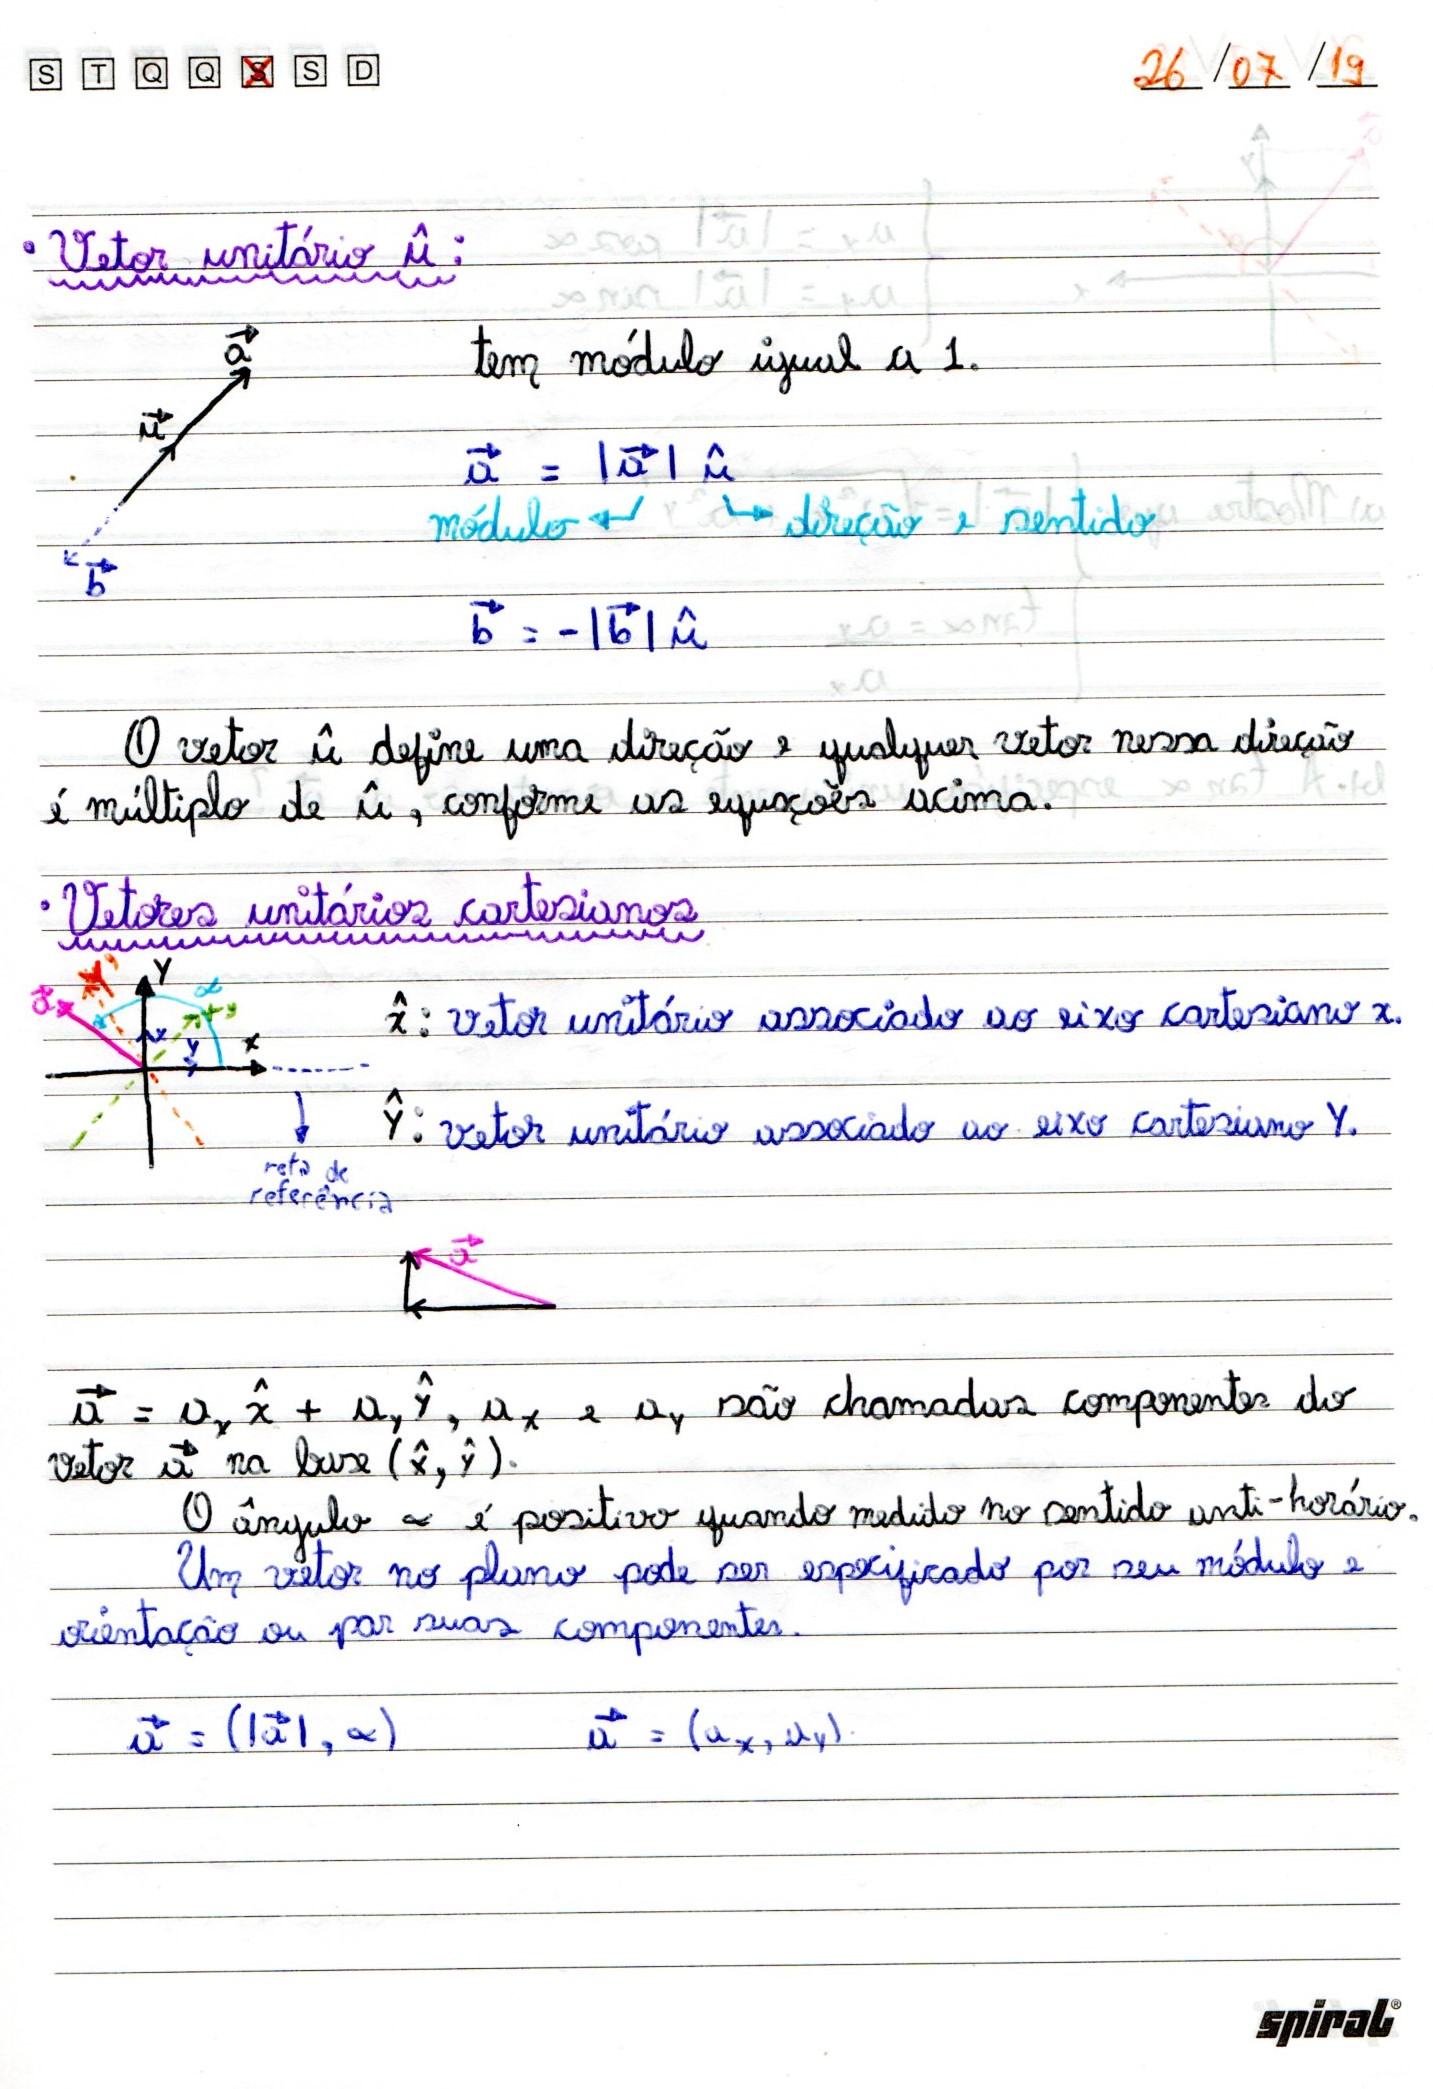 S T Q Q S S D 26/07/19
• Vetor unitário û:
a⃗ tem módulo igual a 1.
u⃗
a⃗ = |a⃗| û
módulo ↲ ↳ direção e sentido
b⃗
b⃗ = -|b⃗| û
O vetor û define uma direção e qualquer vetor nessa direção
é múltiplo de û, conforme as equações acima.
• Vetores unitários cartesianos
a⃗ y' y α x'
x̂: vetor unitário associado ao eixo cartesiano x.
x
ŷ: vetor unitário associado ao eixo cartesiano Y.
reta de
referência
a⃗
a⃗ = aₓ x̂ + aᵧ ŷ, aₓ e aᵧ são chamadas componentes do
vetor a⃗ na base (x̂, ŷ).
O ângulo α é positivo quando medido no sentido anti-horário.
Um vetor no plano pode ser especificado por seu módulo e
orientação ou por suas componentes.
a⃗ = (|a⃗|, α) a⃗ = (aₓ, aᵧ).
spiral®